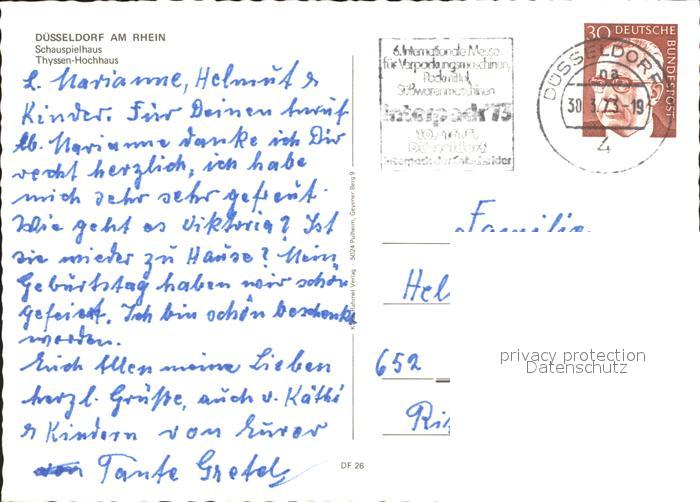 DÜSSELDORF AM RHEIN
Schauspielhaus
Thyssen-Hochhaus
L. Marianne, Helmut &
Kinder. Für Deinen Anruf
lb. Marianne danke ich Dir
recht herzlich, ich habe
mich sehr sehr gefreut.
Wie geht es Viktoria? Ist
sie wieder zu Hause? Mein
Geburtstag haben wir schön
gefeiert. Ich bin schön beschenkt
worden.
Euch Allen meine Lieben
herzl. Grüße, auch v. Käthi
& Kindern von Eurer
Tante Gretel
6. Internationale Messe
für Verpackungsmaschinen,
Packmittel,
Süßwarenmaschinen
interpack 73
Düsseldorf
DÜSSELDORF
na
30.3.73-19
4
30 DEUTSCHE
BUNDESPOST
Verlag 5024 Pulheim, Geyener Berg 9
Familie
Hel
652
privacy protection
Datenschutz
DF 26